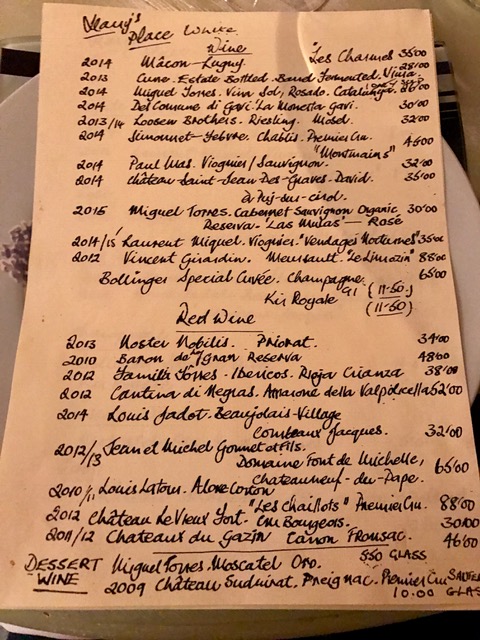 Mary's
Place White
Wine
2014 Mâcon-Lugny. "Les Charmes 35'00
2013 Cune. Estate Bottled. Barrel Fermented. Viura. 28'00
2014 Miguel Torres. Viña Sol, Rosado. Catalunya.
2014 Del Comune di Gavi. La Monetta Gavi. 30'00
2013/14 Loosen Brothers. Riesling. Mosel. 32'00
2014 Simonnet-Febvre. Chablis. Premier Cru. 45'00
"Montmains"
2014 Paul Mas. Viognier/Sauvignon. 32'00
2014 Château-Saint-Jean-Des-Graves-David. 35'00
à Puj-sur-cirol.
2015 Miguel Torres. Cabernet Sauvignon Organic 30'00
Reserva. "Las Mulas" — Rosé
2014/15 Laurent Miguel. Viognier. "Vendages Nocturnes" 35'00
2012 Vincent Girardin. Meursault. "Le Limozin" 88'00
Bollinger Special Cuvée. Champagne. 65'00
gl (11-50)
Kir Royale (11-50)
Red Wine
2013 Noster Nobilis. Priorat. 34'00
2010 Baron de Ley Gran Reserva 48'00
2012 Familia Torres - Ibericos. Rioja Crianza 38'00
2012 Cantina di Negrar. Amarone della Valpolicella 52'00
2014 Louis Jadot. Beaujolais-Village
Combeaux Jacques. 32'00
2012/13 Jean et Michel Gonnet et Fils.
Domaine Font de Michelle, 65'00
Chateauneuf-du-Pape.
2010/11 Louis Latour. Aloxe Corton
"Les Chaillots" Premier Cru. 88'00
2012 Château Le Vieux Fort. Cru Bourgeois. 30'00
2011/12 Chateaux du Gazin Canon Fronsac. 46'00
DESSERT Miguel Torres. Moscatel Oro. 5.50 GLASS
WINE 2009 Château Suduirat. Preignac. Premier Cru
10.00 GLAS